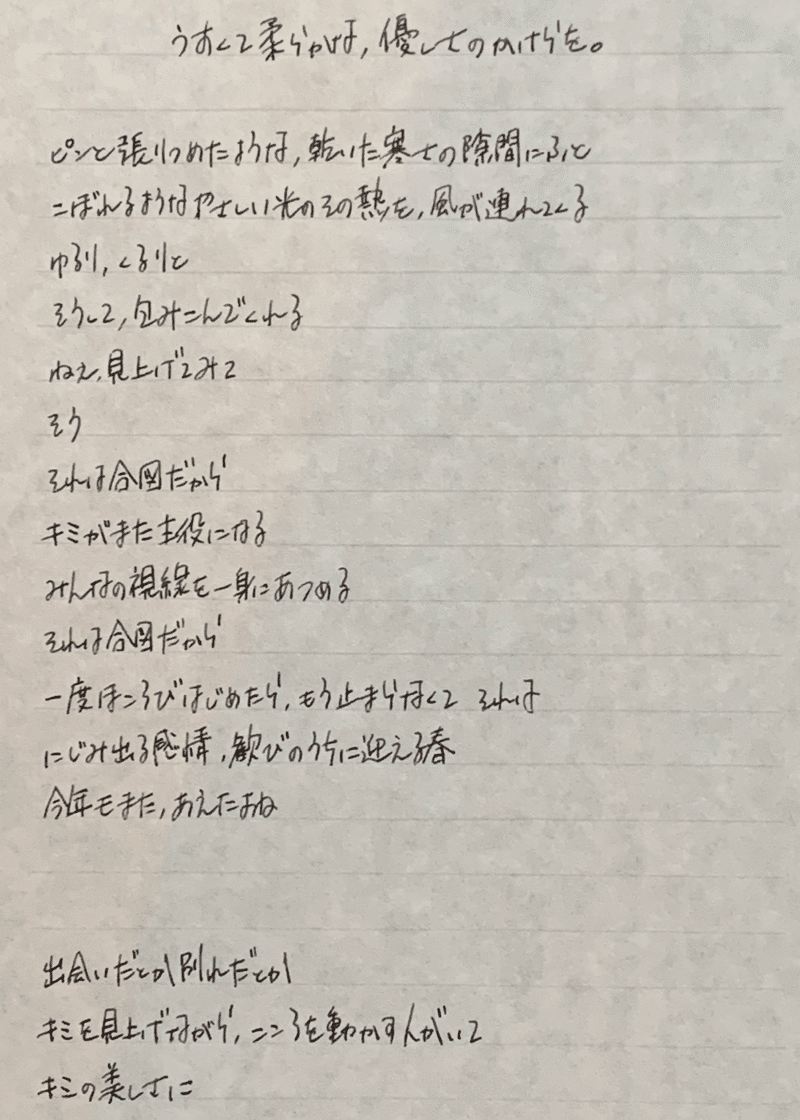 うすくて柔らかな，優しさのかけらを。
ピンと張りつめたような，乾いた寒さの隙間にふと
こぼれるようなやさしい光のその熱を，風が連れてくる
ゆるり，くるりと
そうして，包みこんでくれる
ねえ，見上げてみて
そう
それは合図だから
キミがまた主役になる
みんなの視線を一身にあつめる
それは合図だから
一度ほころびはじめたら，もう止まらなくて それは
にじみ出る感情，歓びのうちに迎える春
今年もまた，あえたよね
出会いだとか別れだとか
キミを見上げながら，こころを動かす人がいて
キミの美しさに